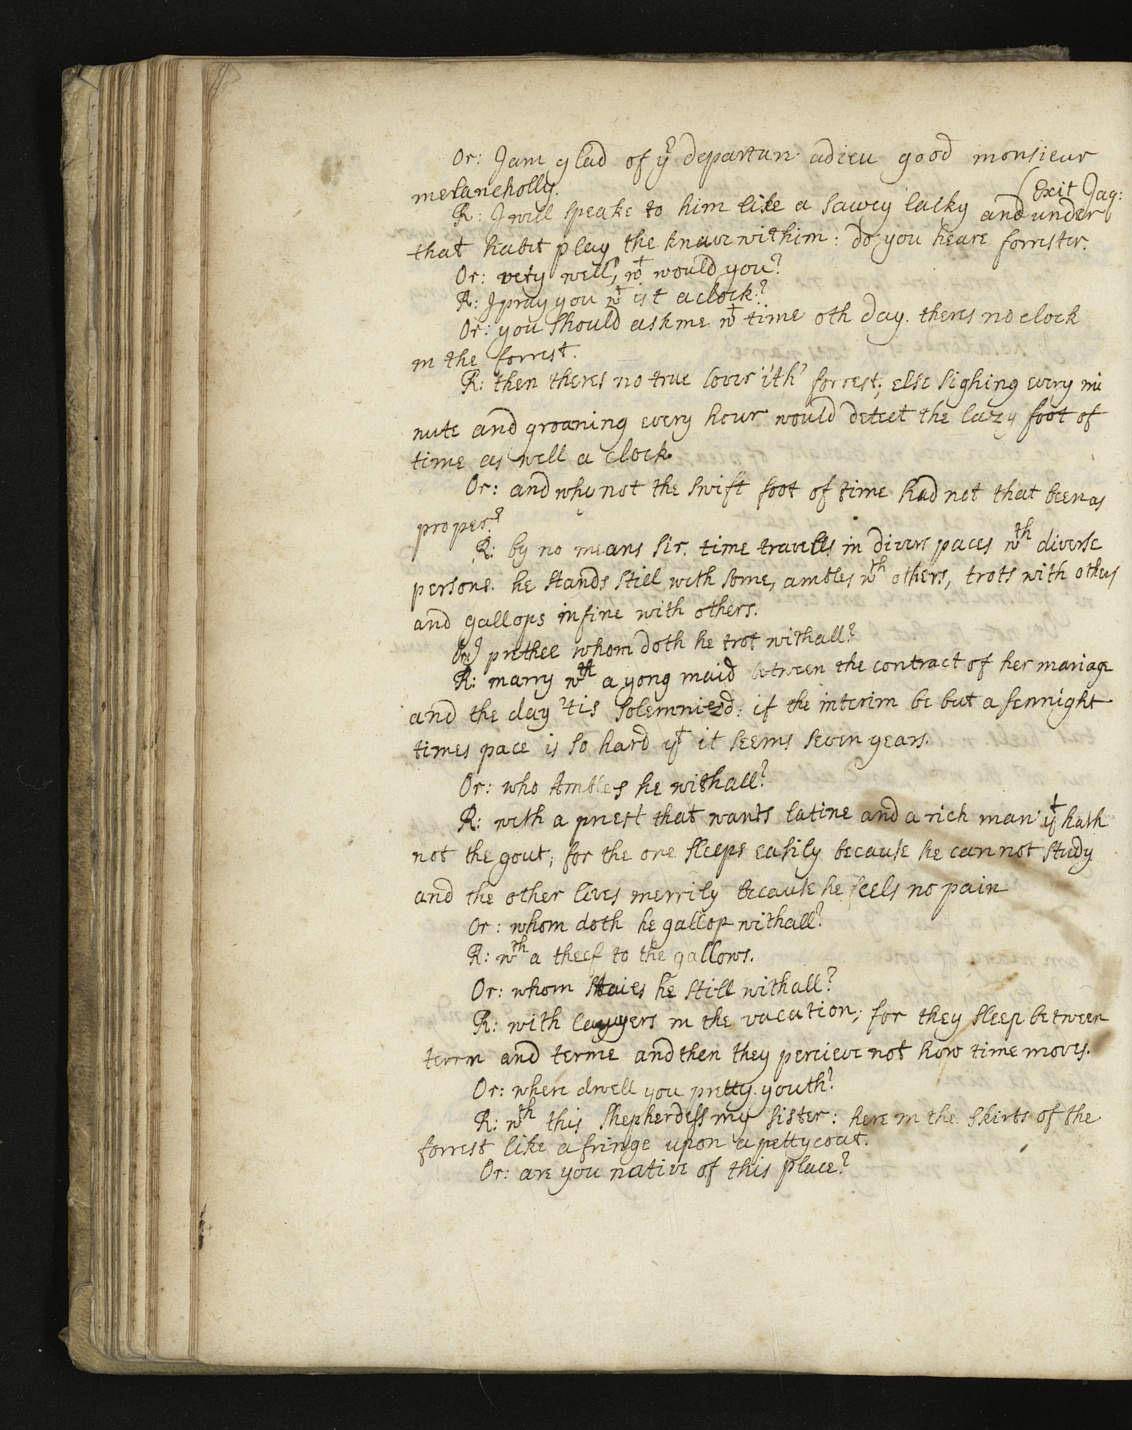 Or: I am glad of yr departure: adieu good monsieur
melancholly. (Exit Jaq:
R: I will speake to him like a sawcy lacky and under
that habit play the knave withim: do you heare forrester.
Or: very well, wt would you?
R: I pray you wt ist a clock?
Or: you should ask me wt time oth day. theres no clock
in the forrest.
R: then theres no true lover ith' forrest; else sighing every mi
nute and groaning every hour would detect the lazy foot of
time as well a clock.
Or: and why not the swift foot of time had not that been as
proper?
R: by no means sir. time travells in divers paces wth diverse
persons. he stands still with some, ambles wth others, trots with others
and gallops in fine with others.
Or) prethee whom doth he trot withall?
R: marry wth a yong maid between the contract of her mariage
and the day 'tis solemnized: if the interim be but a sennight
times pace is so hard yt it seems seven years.
Or: who Ambles he withall?
R: with a priest that wants latine and a rich man yt hath
not the gout; for the one sleeps easily because he cannot study
and the other lives merrily because he feels no pain
Or: whom doth he gallop withall?
R: wth a theef to the gallows.
Or: whom staies he still withall?
R: with lawyers in the vacation; for they sleep between
term and terme and then they percieve not how time moves.
Or: where dwell you pretty youth?
R: wth this shepherdess my sister: here in the skirts of the
forrest like a fringe upon a pettycoat.
Or: are you native of this place?